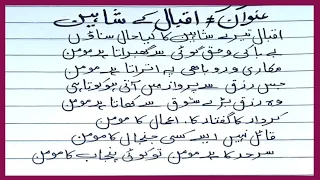 عنوان # اقبال کے شاہین
اقبال تیرے شاہین کا کیا حال سناؤں
بے باکی و حق گوئی سے گھبراتا ہے مومن
مکاری و روباہی پہ اتراتا ہے مومن
جس رزق سے پرواز میں آتی ہو کوتاہی
وہ رزق بڑے شوق سے کھاتا ہے مومن
کردار کا گفتار کا اعمال کا مومن
قائل نہیں ایسے کسی جنجال کا مومن
سرحد کا ہے مومن تو کوئی پنجاب کا مومن